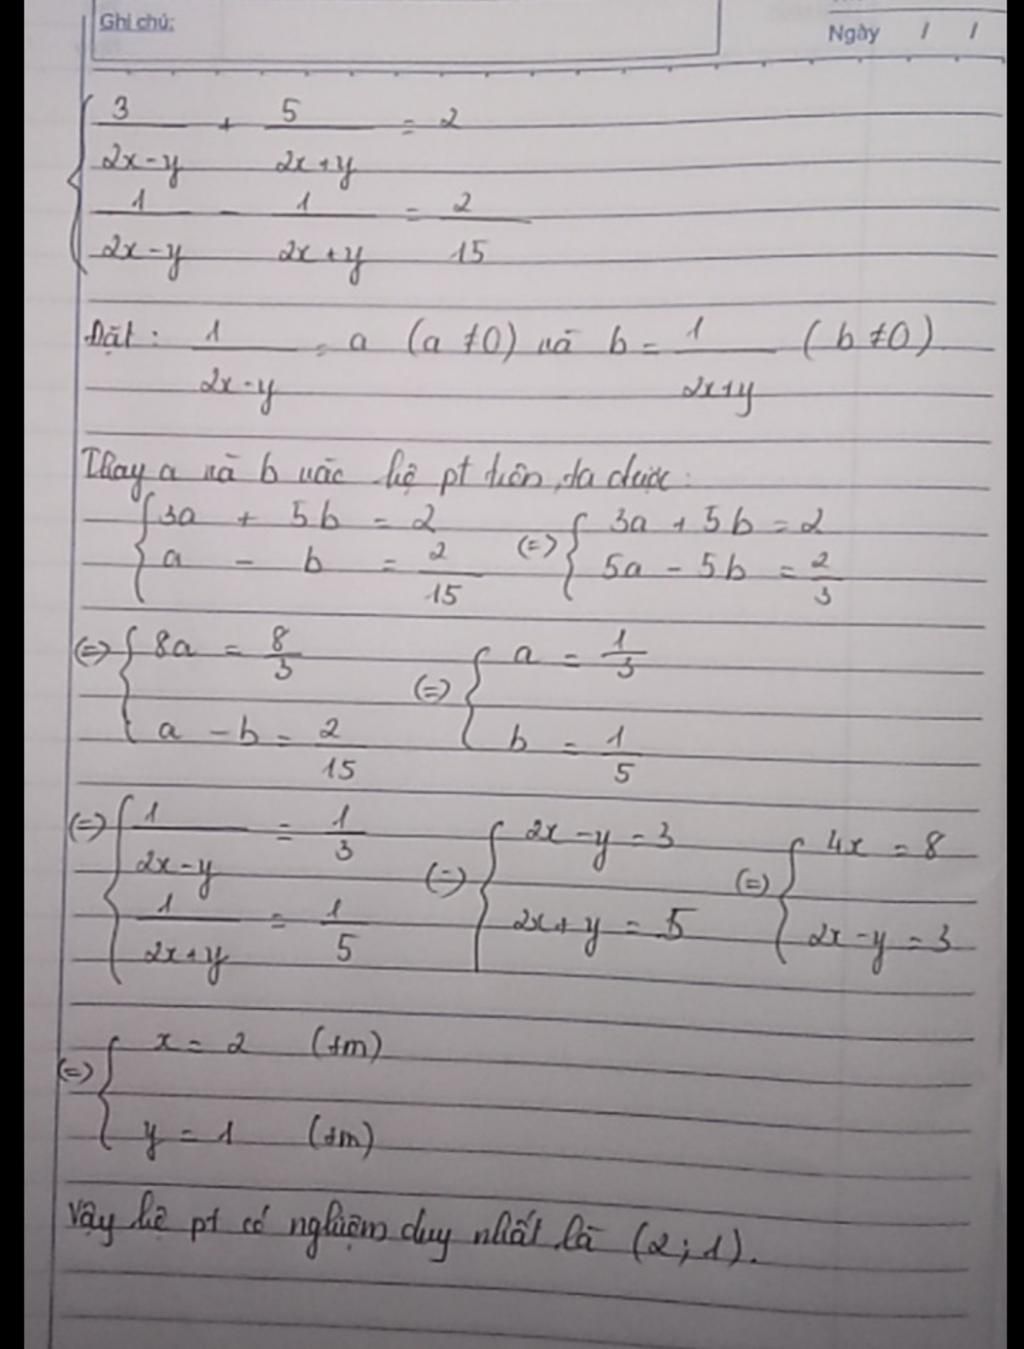 Ghi chú:
Ngày / /
{ 3/(2x-y) + 5/(2x+y) = 2
1/(2x-y) - 1/(2x+y) = 2/15
Đặt: 1/(2x-y) = a (a ≠ 0) và b = 1/(2x+y) (b ≠ 0)
Thay a và b vào hệ pt trên, ta được:
{ 3a + 5b = 2 (=) { 3a + 5b = 2
a - b = 2/15 5a - 5b = 2/3
(=) { 8a = 8/3 (=) { a = 1/3
a - b = 2/15 b = 1/5
(=) { 1/(2x-y) = 1/3 (=) { 2x - y = 3 (=) { 4x = 8
1/(2x+y) = 1/5 2x + y = 5 2x - y = 3
(=) { x = 2 (tm)
y = 1 (tm)
Vậy hệ pt có nghiệm duy nhất là (2; 1).